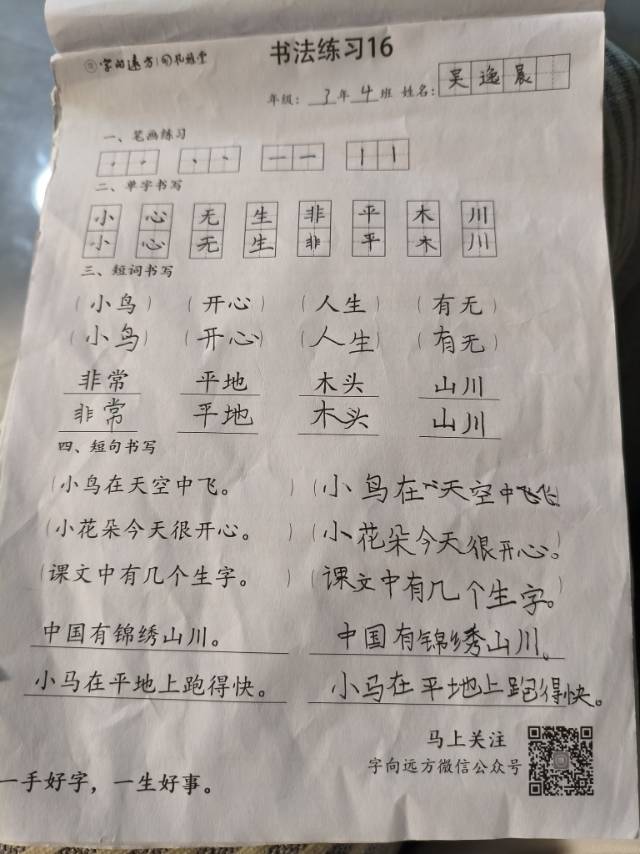 字向远方
书法练习16
年级：3年4班 姓名：吴逸晨
一、笔画练习
二、单字书写
小 心 无 生 非 平 木 川
小 心 无 生 非 平 木 川
三、短词书写
（小鸟） （开心） （人生） （有无）
（小鸟） （开心） （人生） （有无）
非常 平地 木头 山川
非常 平地 木头 山川
四、短句书写
（小鸟在天空中飞。 ）（小鸟在天空中飞
（小花朵今天很开心。 ）（小花朵今天很开心。
（课文中有几个生字。 ）（课文中有几个生字。）
中国有锦绣山川。 中国有锦绣山川。
小马在平地上跑得快。 小马在平地上跑得快。
马上关注
字向远方微信公众号
一手好字，一生好事。